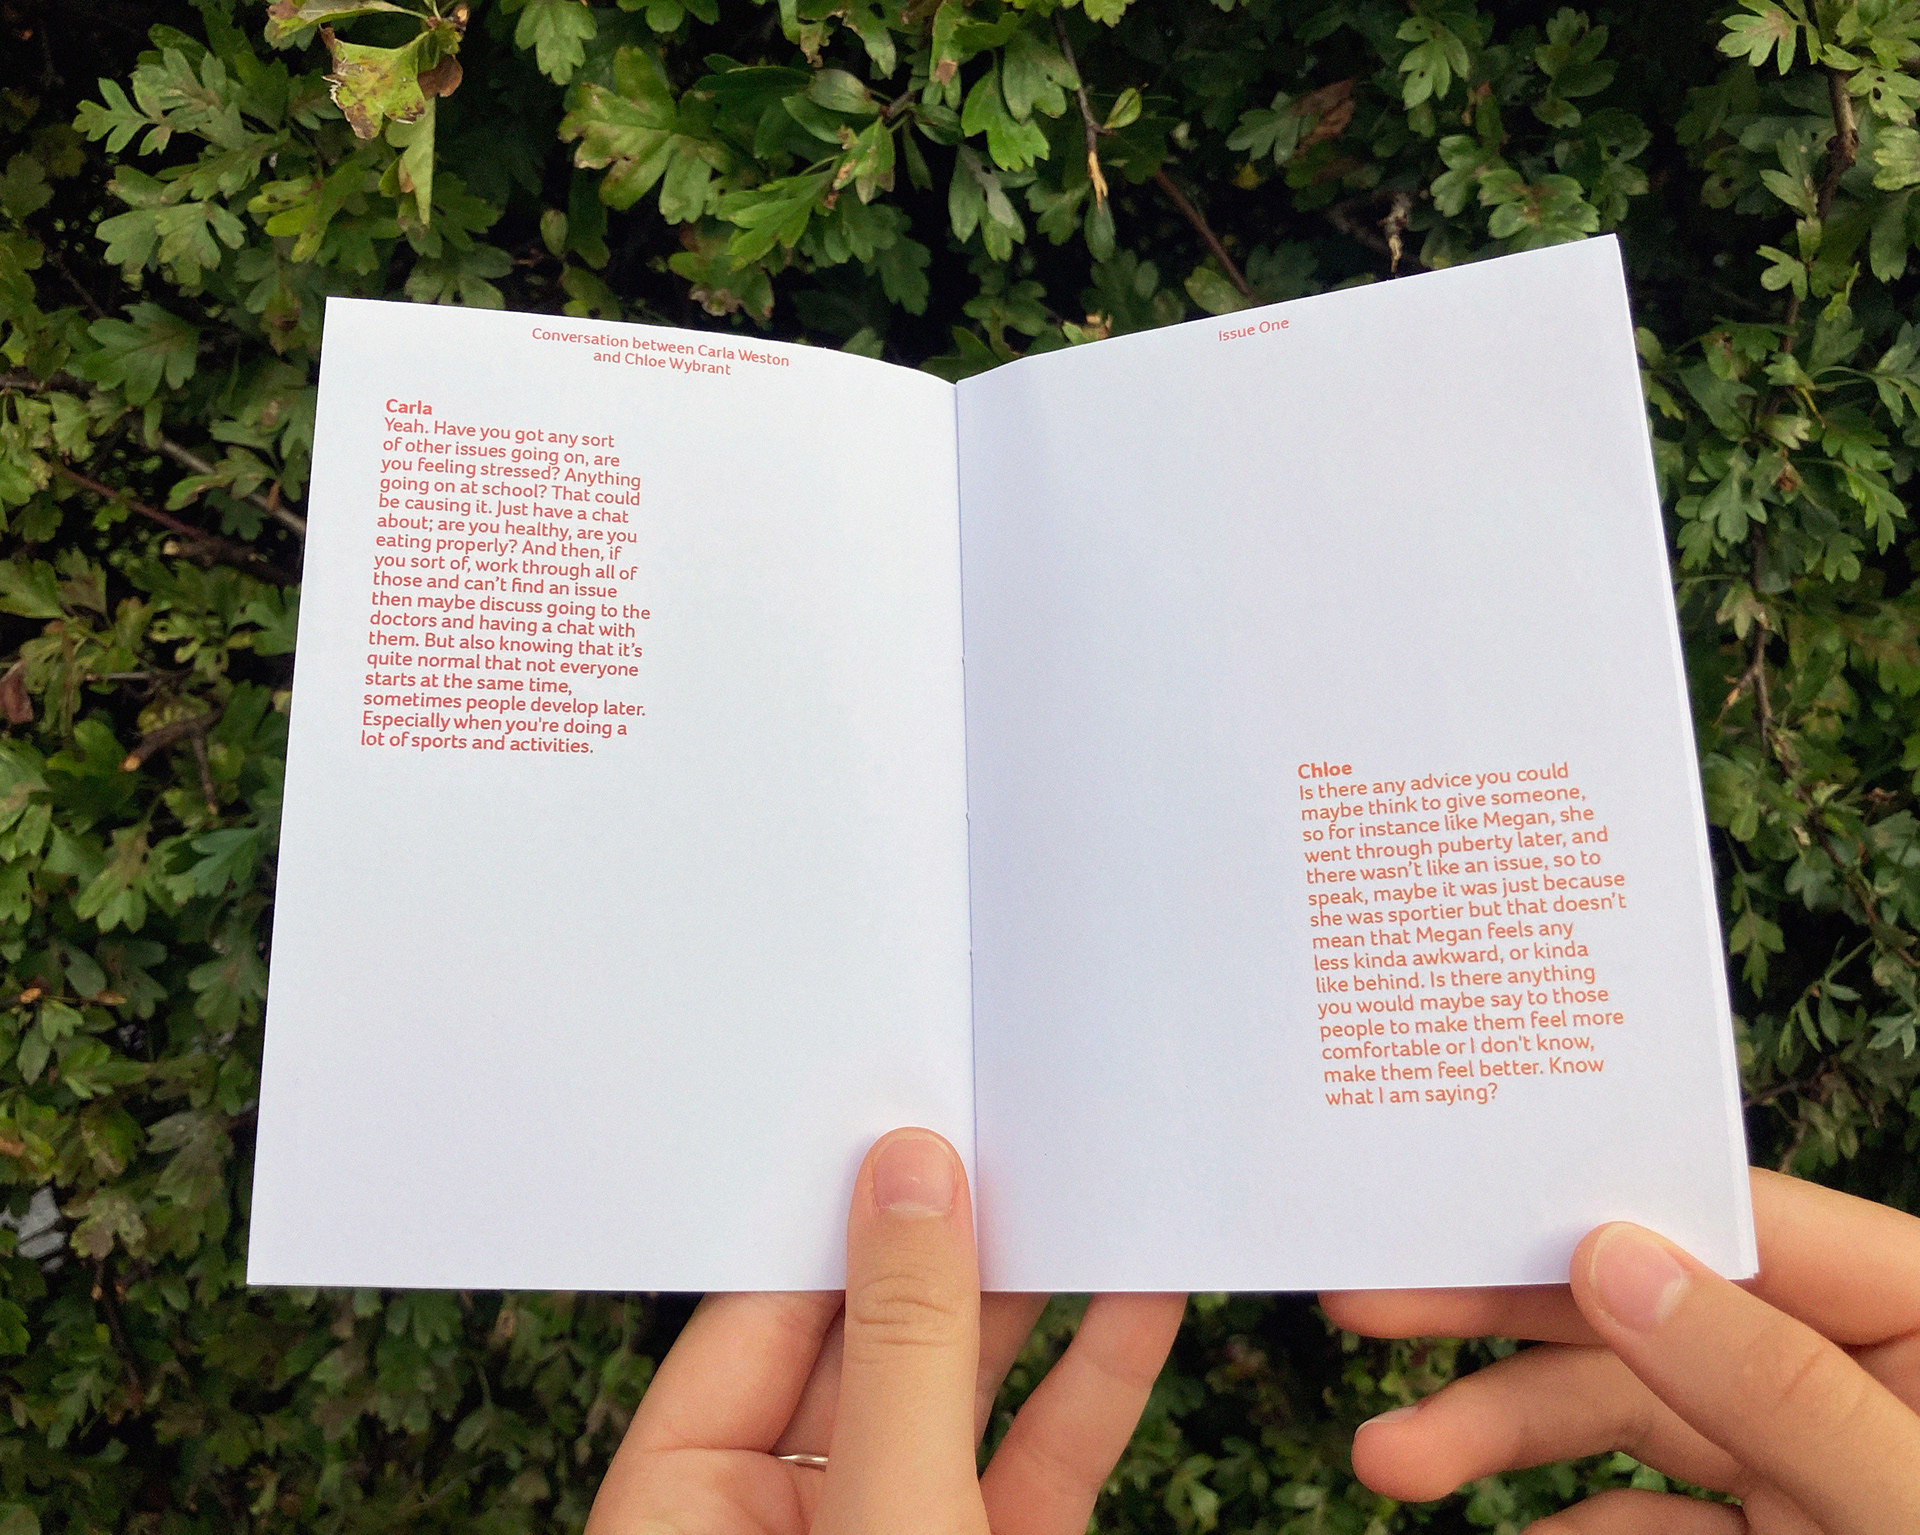 Conversation between Carla Weston
and Chloe Wybrant
Carla
Yeah. Have you got any sort
of other issues going on, are
you feeling stressed? Anything
going on at school? That could
be causing it. Just have a chat
about; are you healthy, are you
eating properly? And then, if
you sort of, work through all of
those and can’t find an issue
then maybe discuss going to the
doctors and having a chat with
them. But also knowing that it’s
quite normal that not everyone
starts at the same time,
sometimes people develop later.
Especially when you're doing a
lot of sports and activities.
Issue One
Chloe
Is there any advice you could
maybe think to give someone,
so for instance like Megan, she
went through puberty later, and
there wasn’t like an issue, so to
speak, maybe it was just because
she was sportier but that doesn’t
mean that Megan feels any
less kinda awkward, or kinda
like behind. Is there anything
you would maybe say to those
people to make them feel more
comfortable or I don't know,
make them feel better. Know
what I am saying?